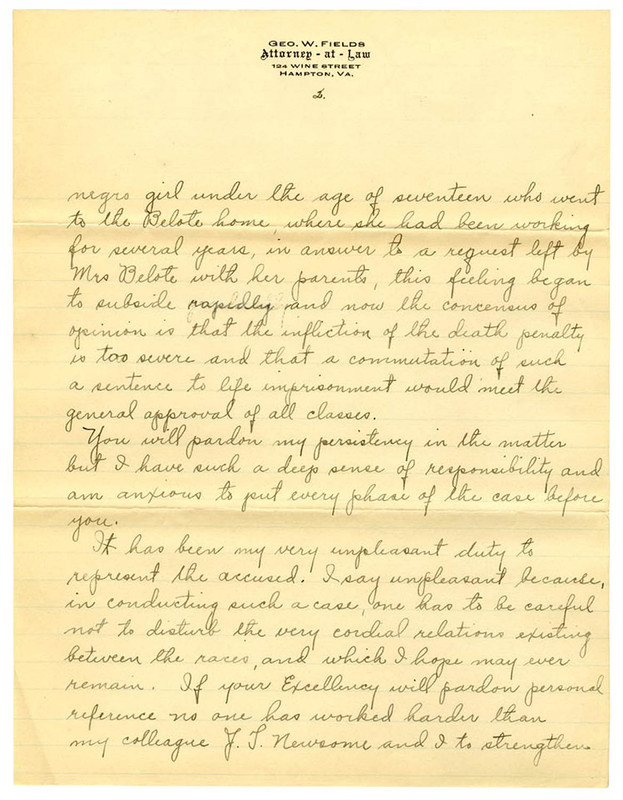 GEO. W. FIELDS
Attorney - at - Law
124 WINE STREET
HAMPTON, VA.
2.
negro girl under the age of seventeen who went
to the Belote home, where she had been working
for several years, in answer to a request left by
Mrs Belote with her parents, this feeling began
to subside rapidly and now the concensus of
opinion is that the infliction of the death penalty
is too severe and that a commutation of such
a sentence to life imprisonment would meet the
general approval of all classes.
You will pardon my persistency in the matter
but I have such a deep sense of responsibility and
am anxious to put every phase of the case before
you.
It has been my very unpleasant duty to
represent the accused. I say unpleasant because,
in conducting such a case, one has to be careful
not to disturb the very cordial relations existing
between the races, and which I hope may ever
remain. If your Excellency will pardon personal
reference no one has worked harder than
my colleague J. T. Newsome and I to strengthen